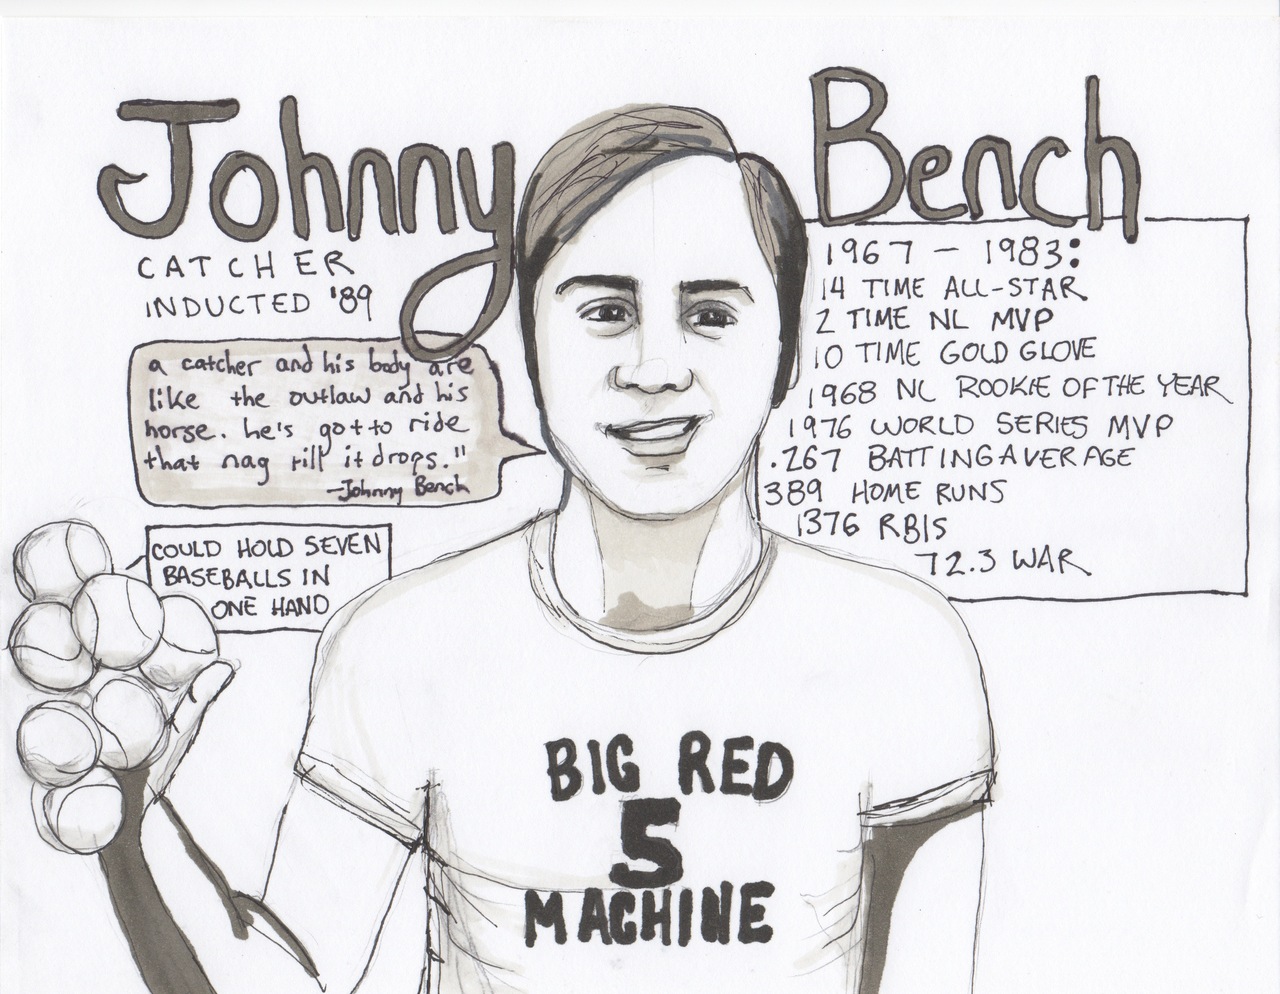 Johnny Bench
CATCHER
INDUCTED '89
a catcher and his body are
like the outlaw and his
horse. he's got to ride
that nag till it drops."
-Johnny Bench
COULD HOLD SEVEN
BASEBALLS IN
ONE HAND
1967 - 1983:
14 TIME ALL-STAR
2 TIME NL MVP
10 TIME GOLD GLOVE
1968 NL ROOKIE OF THE YEAR
1976 WORLD SERIES MVP
.267 BATTING AVERAGE
389 HOME RUNS
1376 RBIS
72.3 WAR
BIG RED
5
MACHINE